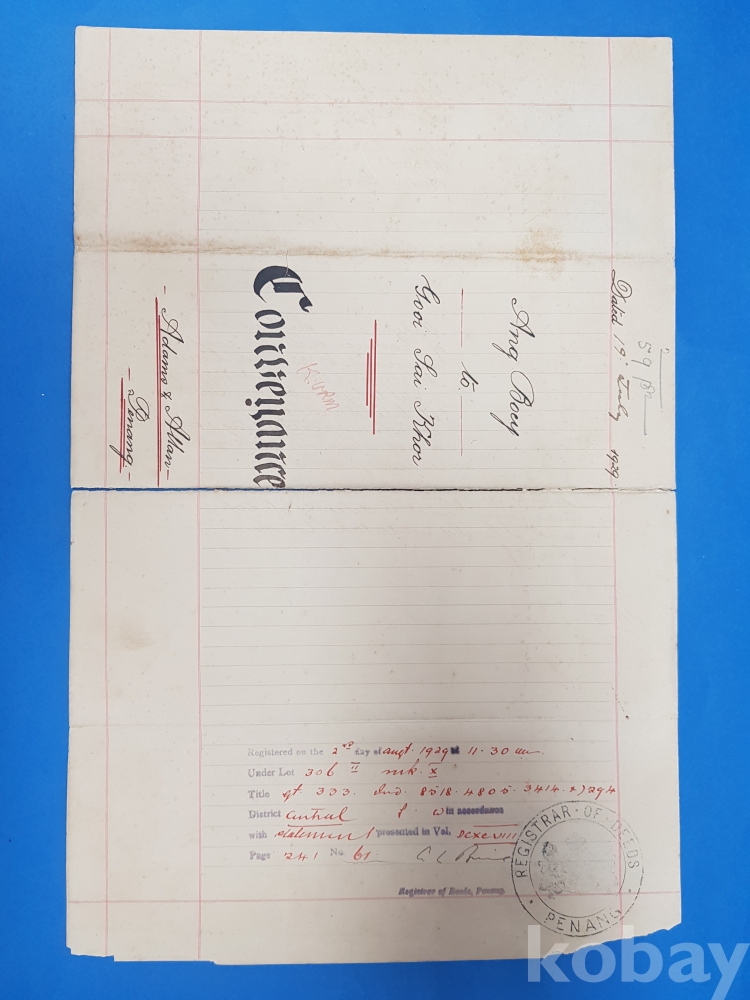 59/
Dated 19' July 1929
Ang Boey
to
Gooi Sai Khor
K. UAM
Conveyance
- Adams & Allan -
- Penang. -
Registered on the 2nd day of augt. 1929 at 11.30 am
Under Lot 306 II mk. X
Title gt 333. Ind. 8518. 4805. 3414.
District Central in accordance
with statement presented in Vol.
Page 241 No 61
Registrar of Deeds, Penang.
REGISTRAR · OF · DEEDS
· PENANG ·
kobay